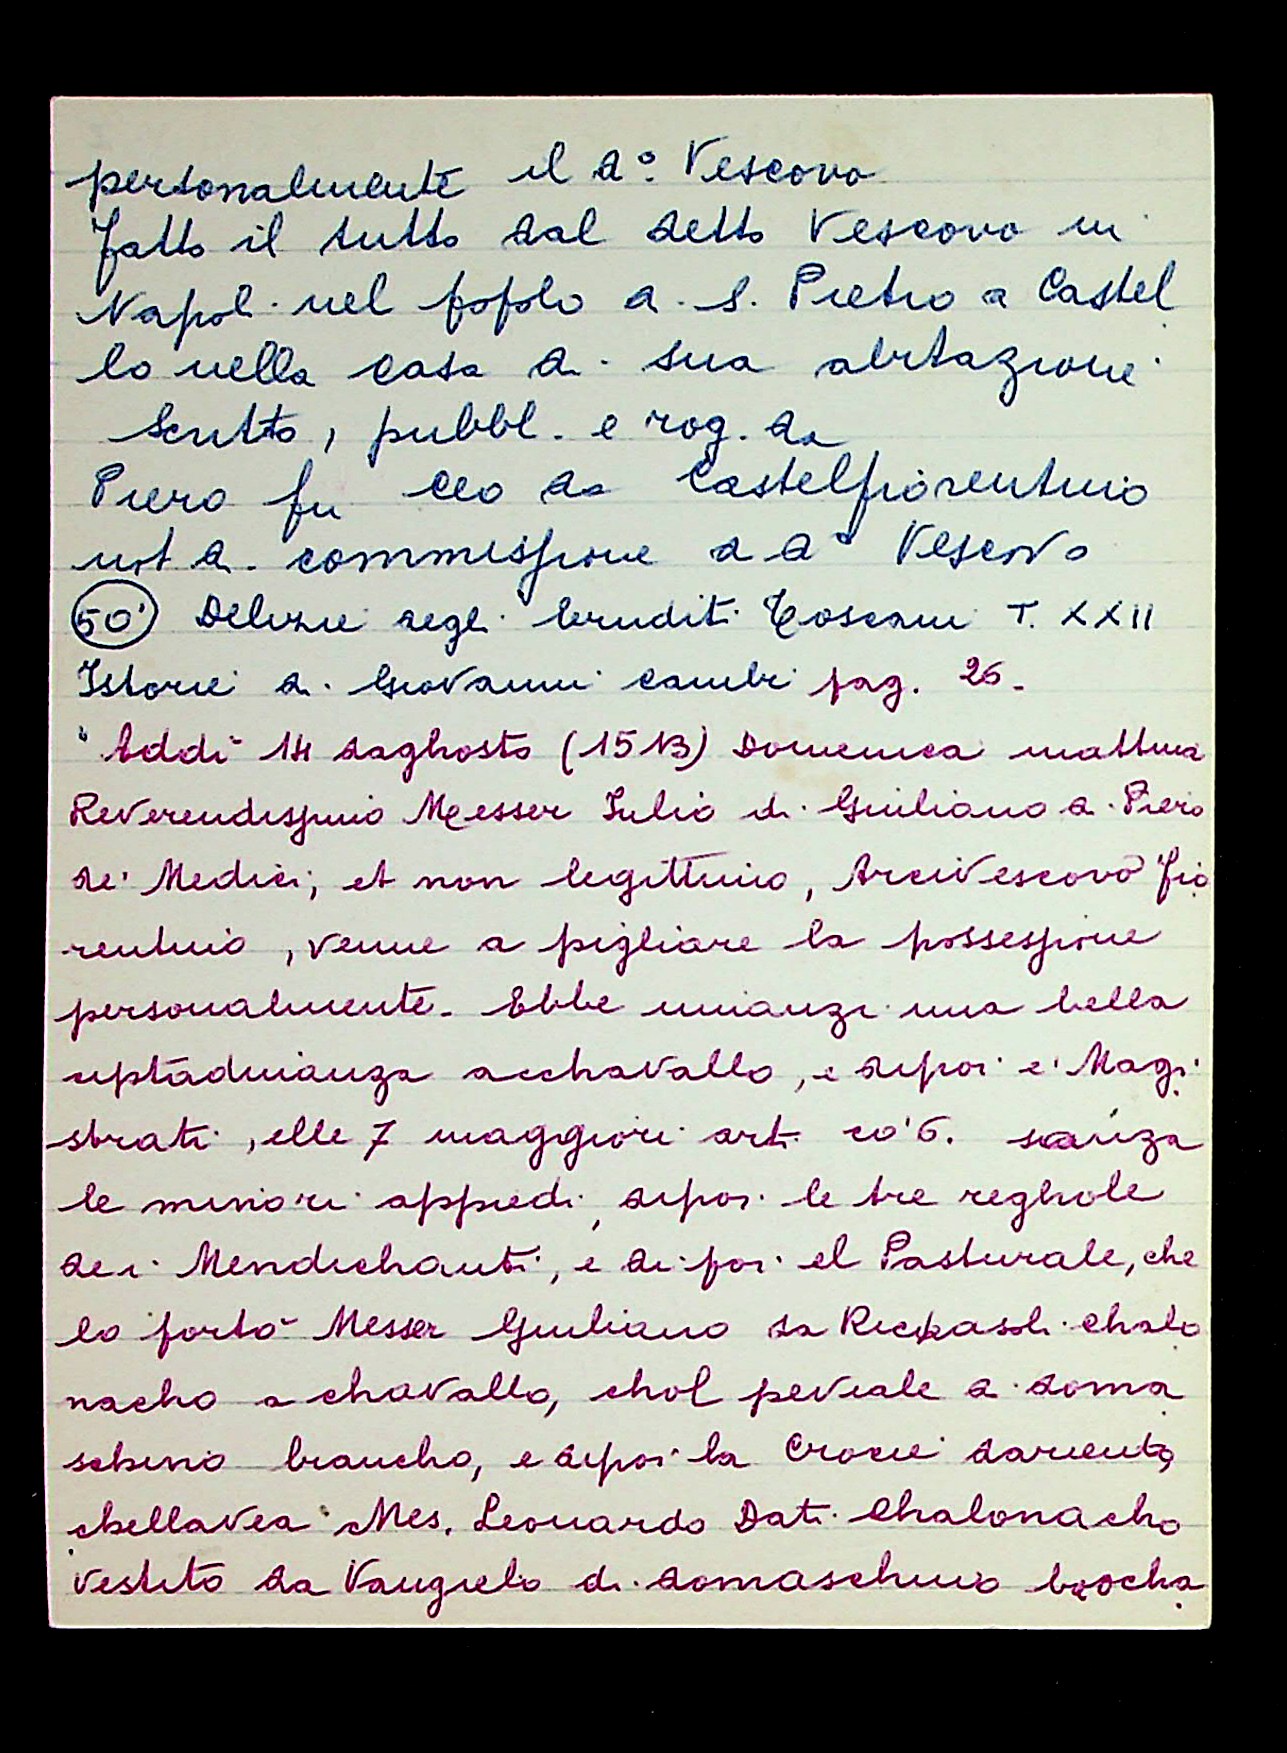 personalmente il dº. Vescovo
fatto il tutto dal detto Vescovo in
Napol. nel popolo d. S. Pietro a Castel
lo nella casa di sua abitazione
Scritto, pubbl. e rog. da
Piero fu Ceo da Castelfiorentino
not d. commissione d dº Vescovo
50) Delizie degl. Eruditi Toscani T. XXII
Istorie di Giovanni Cambi pag. 26.
"Addì 14 daghosto (1513) Domenica mattina
Reverendissimo Messer Iulio di Giuliano d. Piero
de' Medici, et non legittimo, Arcivescovo fio
rentino, venne a pigliare la possessione
personalmente. Ebbe innanzi una bella
acchavallo, e dipoi e' Magi
strati, elle 7 maggiori arti co' 6. sanza
le minori appiedi, dipoi le tre reghole
dei Mendichanti, e di poi el Pasturale, che
lo portò Messer Giuliano da Richasoli chalo
nacho a chavallo, chol peviale di doma
schino biancho, e dipoi la Crocie dariento,
chellavea Mes. Leonardo Dati Chalonacho
vestito da Vangielo di domaschino